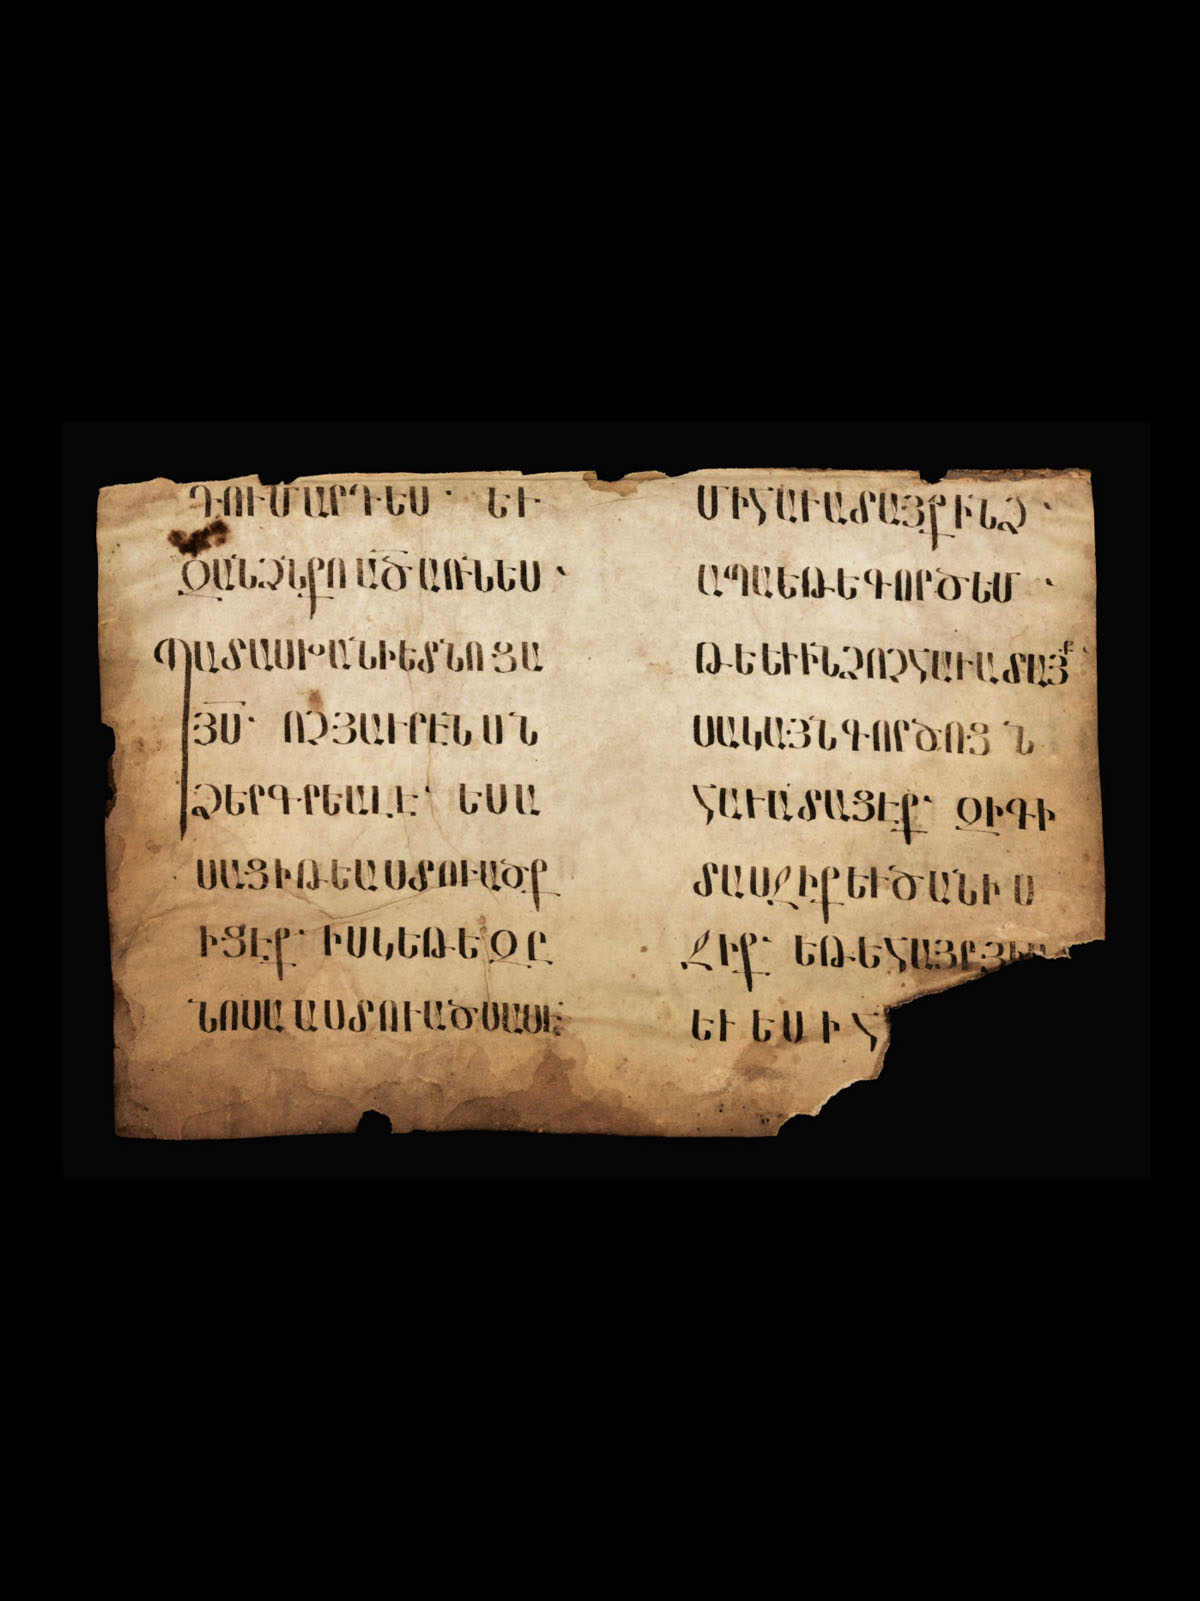 ԴՈՒՄԱՐԴԵՍ՝ ԵՒ
ԶԱՆՁՆՔՈԱԾԱՌՆԵՍ՝
ՊԱՏԱՍԽԱՆԻԵՏՆՈՑԱ
ՅՍ՝ ՈՉՅԱՒՐԷՆՍՆ
ՁԵՐԳՐԵԱԼԷ՝ ԵՍԱ
ՍԱՑԻԹԵԱՍՏՈՒԱԾՔ
ԻՑԷՔ՝ ԻՍԿԵԹԵԶԸ
ՆՈՍԱԱՍՏՈՒԱԾՍԱՍԷ
ՄԻՀԱՒԱՏԱՅՔԻՆՁ՝
ԱՊԱԵԹԵԳՈՐԾԵՄ՝
ԹԵԵՒԻՆՁՈՉՀԱՒԱՏԱՅՔ՝
ՍԱԿԱՅՆԳՈՐԾՈՑՆ
ՀԱՒԱՏԱՑԷՔ՝ ԶԻԳԻ
ՏԱՍՋԻՔԵՒԾԱՆԻՍ
ՋԻՔ՝ ԵԹԵՀԱՅՐՅԻՍ
ԵՒԵՍԻՀ